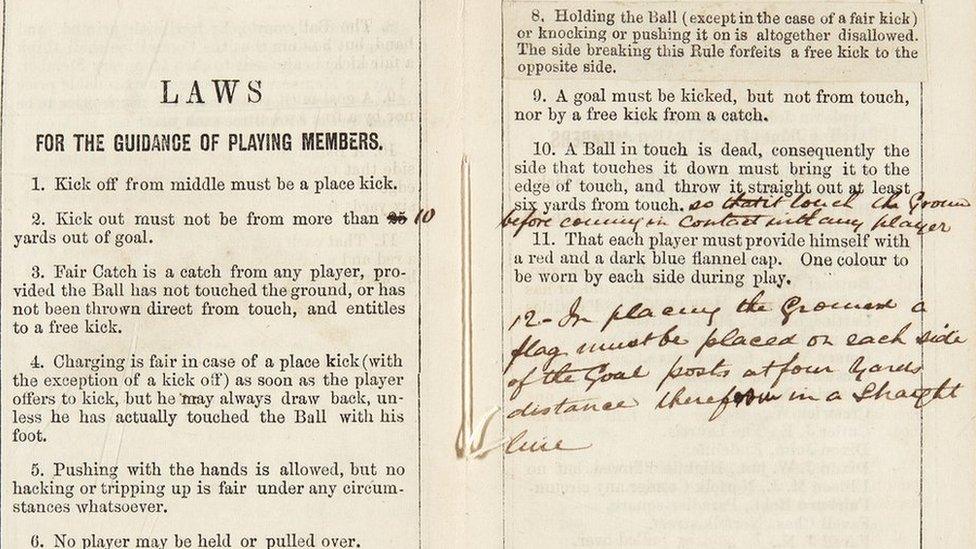 LAWS
FOR THE GUIDANCE OF PLAYING MEMBERS.
1. Kick off from middle must be a place kick.
2. Kick out must not be from more than 25 10
yards out of goal.
3. Fair Catch is a catch from any player, pro-
vided the Ball has not touched the ground, or has
not been thrown direct from touch, and entitles
to a free kick.
4. Charging is fair in case of a place kick (with
the exception of a kick off) as soon as the player
offers to kick, but he may always draw back, un-
less he has actually touched the Ball with his
foot.
5. Pushing with the hands is allowed, but no
hacking or tripping up is fair under any circum-
stances whatsoever.
6. No player may be held or pulled over.
8. Holding the Ball (except in the case of a fair kick)
or knocking or pushing it on is altogether disallowed.
The side breaking this Rule forfeits a free kick to the
opposite side.
9. A goal must be kicked, but not from touch,
nor by a free kick from a catch.
10. A Ball in touch is dead, consequently the
side that touches it down must bring it to the
edge of touch, and throw it straight out at least
six yards from touch. so that it touch the Groun
before coming in contact with any player
11. That each player must provide himself with
a red and a dark blue flannel cap. One colour to
be worn by each side during play.
12 - In placing the Ground a
flag must be placed on each side
of the Goal posts at four Yards
distance therefrom in a Straght
line